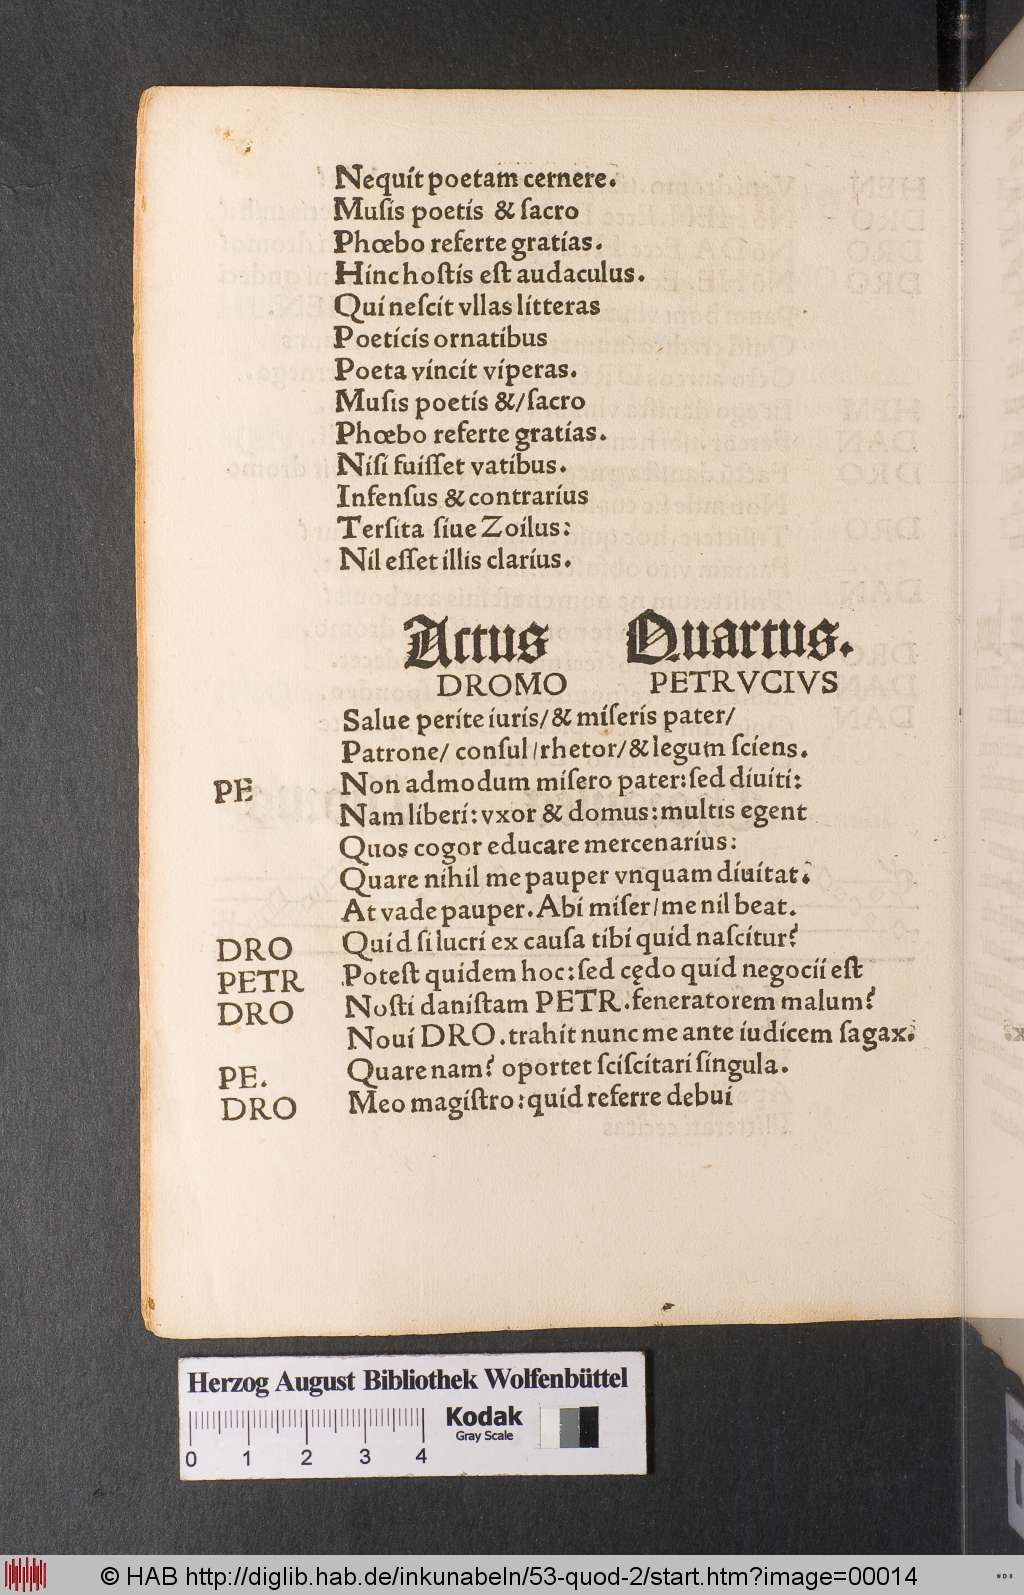 Nequit poetam cernere.
Muſis poetis & ſacro
Phœbo referte gratias.
Hinc hoſtis eſt audaculus.
Qui neſcit vllas litteras
Poeticis ornatibus
Poeta vincit viperas.
Muſis poetis &/ſacro
Phœbo referte gratias.
Niſi fuiſſet vatibus.
Infenſus & contrarius
Terſita ſiue Zoilus:
Nil eſſet illis clarius.
Actus Quartus.
DROMO PETRVCIVS
Salue perite iuris/& miſeris pater/
Patrone/ conſul/rhetor/& legum ſciens.
PE Non admodum miſero pater:ſed diuiti:
Nam liberi: vxor & domus: multis egent
Quos cogor educare mercenarius:
Quare nihil me pauper vnquam diuitat.
At vade pauper. Abi miſer/me nil beat.
DRO Quid ſi lucri ex cauſa tibi quid naſcitur?
PETR Poteſt quidem hoc: ſed cędo quid negocii eſt
DRO Noſti daniſtam PETR. feneratorem malum?
Noui DRO. trahit nunc me ante iudicem ſagax.
PE. Quare nam? oportet ſciſcitari ſingula.
DRO Meo magiſtro: quid referre debui
Herzog August Bibliothek Wolfenbüttel
Kodak
Gray Scale
0 1 2 3 4
© HAB http://diglib.hab.de/inkunabeln/53-quod-2/start.htm?image=00014